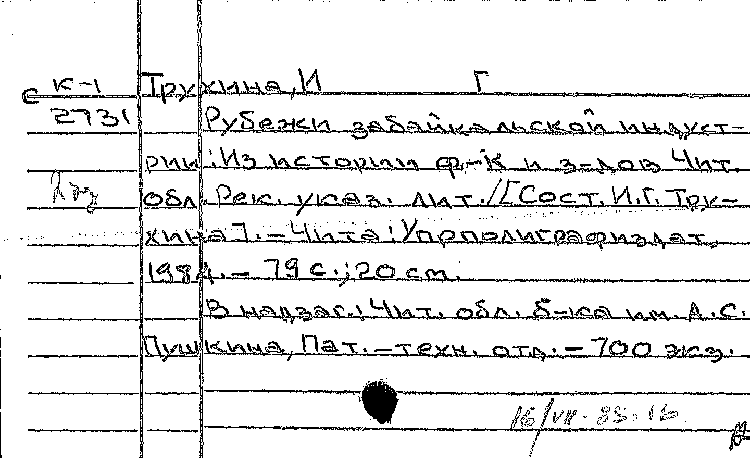 с К-1 Трухина, И Г
2731 Рубежи забайкальской индуст-
рии: Из истории ф-к и з-дов Чит.
обл. Рек. указ. лит./[Сост. И.Г. Тру-
хина]. – Чита: Упрполиграфиздат,
1984. – 79 с.; 20 см.
В надзаг.: Чит. обл. б-ка им. А.С.
Пушкина, Пат. – техн. отд. – 700 экз.